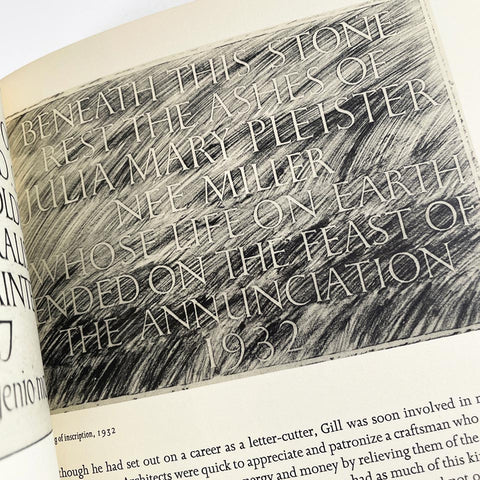 BENEATH THIS STONE
REST THE ASHES OF
JULIA MARY PLEISTER
NEE MILLER
WHOSE LIFE ON EARTH
ENDED ON THE FEAST OF
THE ANNUNCIATION
1932
of inscription, 1932
he had set out on a career as a letter-cutter, Gill was soon involved in
Architects were quick to appreciate and patronize a craftsman who
and money by relieving them of the
had as much of this